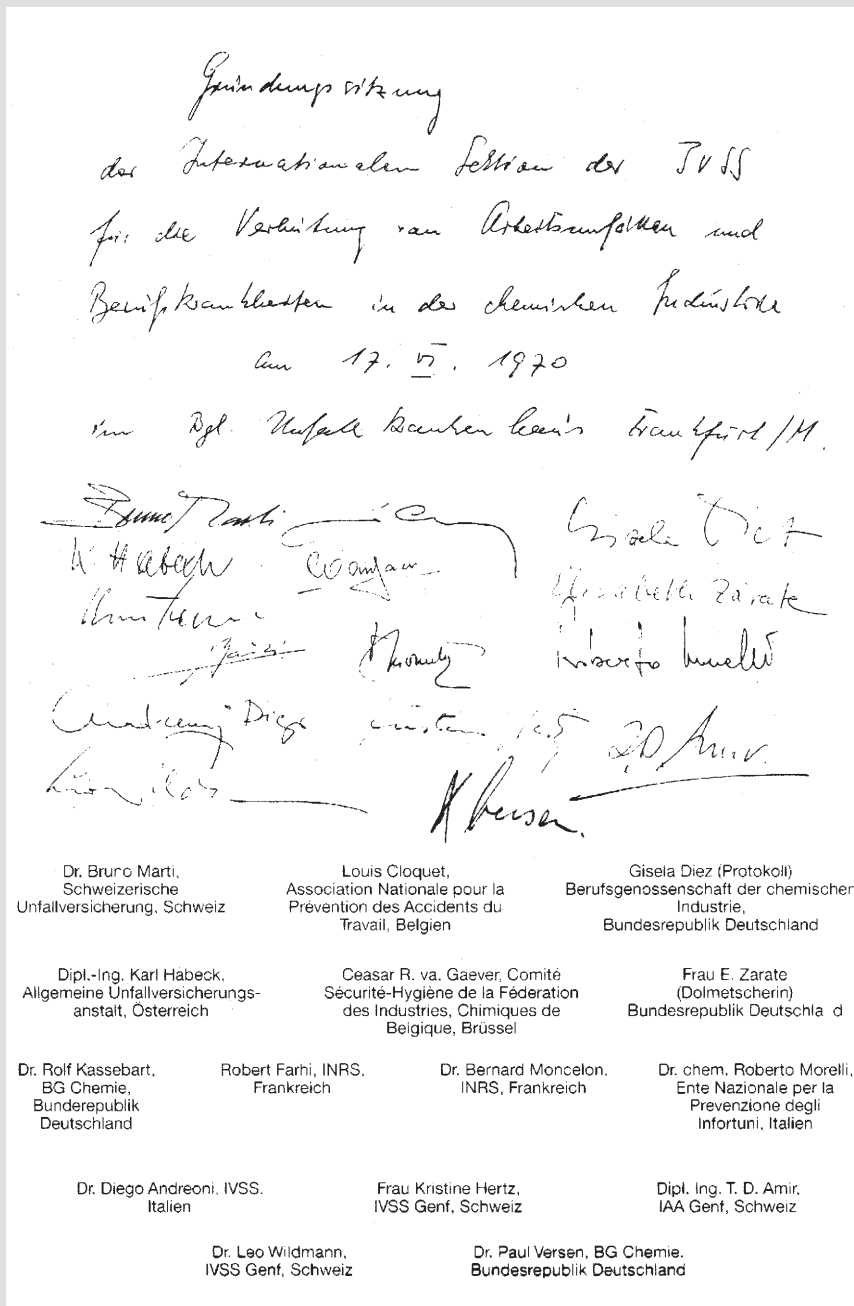 Gründungssitzung
der Internationalen Sektion der IVSS
für die Verhütung von Arbeitsunfällen und
Berufskrankheiten in der chemischen Industrie
am 17. VI. 1970
im Bgl. Unfallkrankenhaus Frankfurt/M.
Bruno Marti
Gisela Diez
K Habeck
Elisabeth Zárate
Roberto Morelli
Andreoni Diego
T.D. Amir.
Versen.
Dr. Bruno Marti,
Schweizerische
Unfallversicherung, Schweiz
Louis Cloquet,
Association Nationale pour la
Prévention des Accidents du
Travail, Belgien
Gisela Diez (Protokoll)
Berufsgenossenschaft der chemischen
Industrie,
Bundesrepublik Deutschland
Dipl.-Ing. Karl Habeck,
Allgemeine Unfallversicherungs-
anstalt, Österreich
Ceasar R. va. Gaever, Comité
Sécurité-Hygiène de la Féderation
des Industries, Chimiques de
Belgique, Brüssel
Frau E. Zarate
(Dolmetscherin)
Bundesrepublik Deutschla d
Dr. Rolf Kassebart,
BG Chemie,
Bunderepublik
Deutschland
Robert Farhi, INRS,
Frankreich
Dr. Bernard Moncelon,
INRS, Frankreich
Dr. chem. Roberto Morelli,
Ente Nazionale per la
Prevenzione degli
Infortuni, Italien
Dr. Diego Andreoni, IVSS.
Italien
Frau Kristine Hertz,
IVSS Genf, Schweiz
Dipl. Ing. T. D. Amir,
IAA Genf, Schweiz
Dr. Leo Wildmann,
IVSS Genf, Schweiz
Dr. Paul Versen, BG Chemie.
Bundesrepublik Deutschland